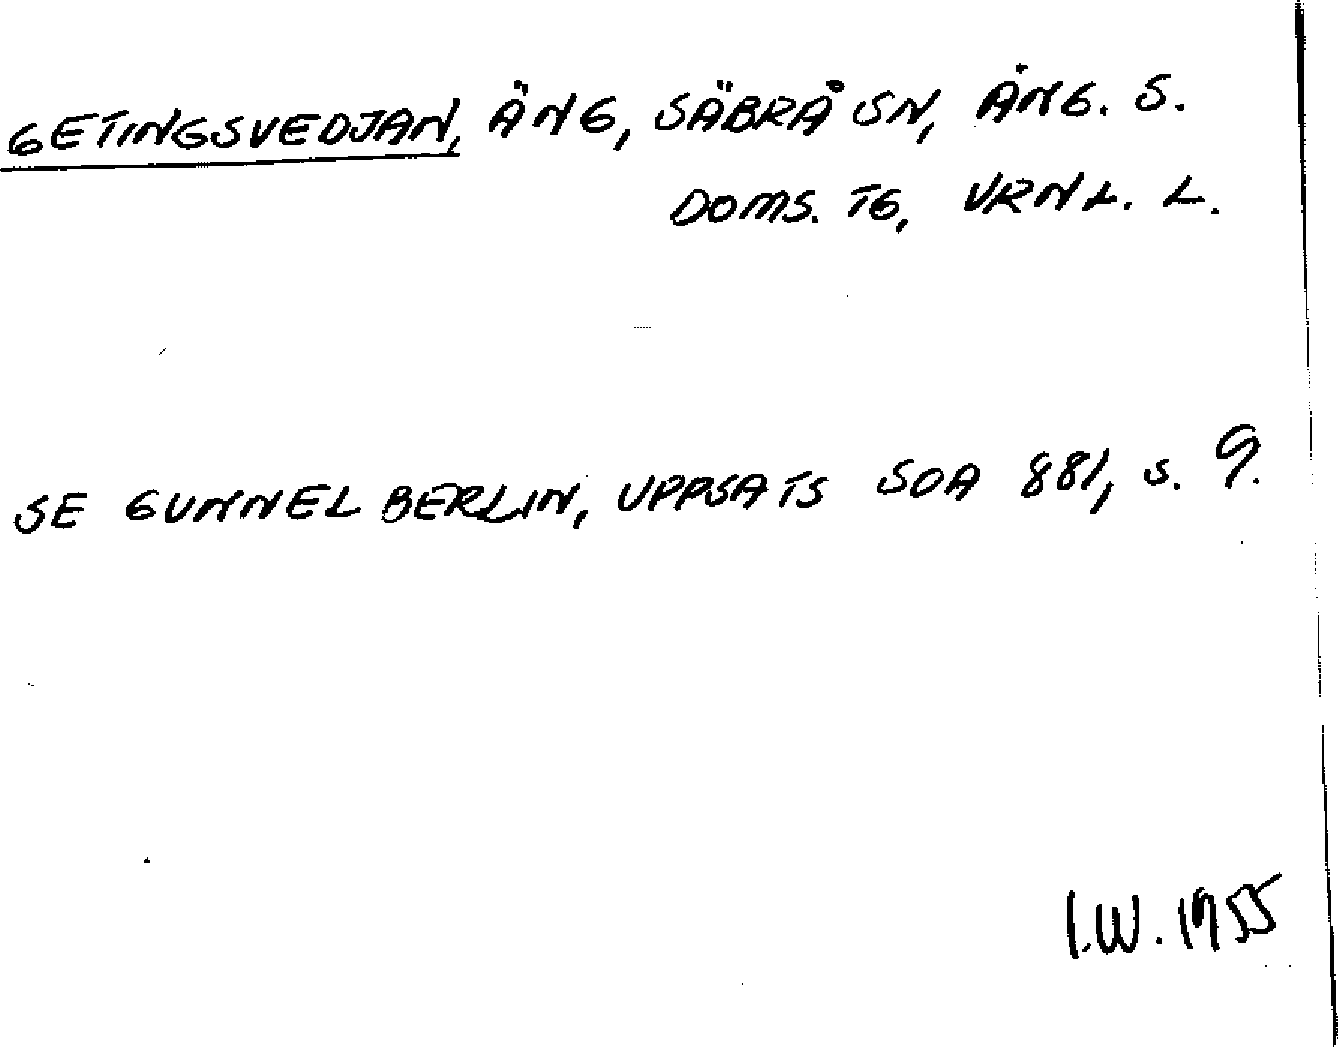 GETINGSVEDJAN, ÄNG, SÄBRÅ SN, ÅNG. S.
DOMS. TG, VRNL. L.
SE GUNNEL BERLIN, UPPSATS SOA 881, S. 9.
I.W. 1955